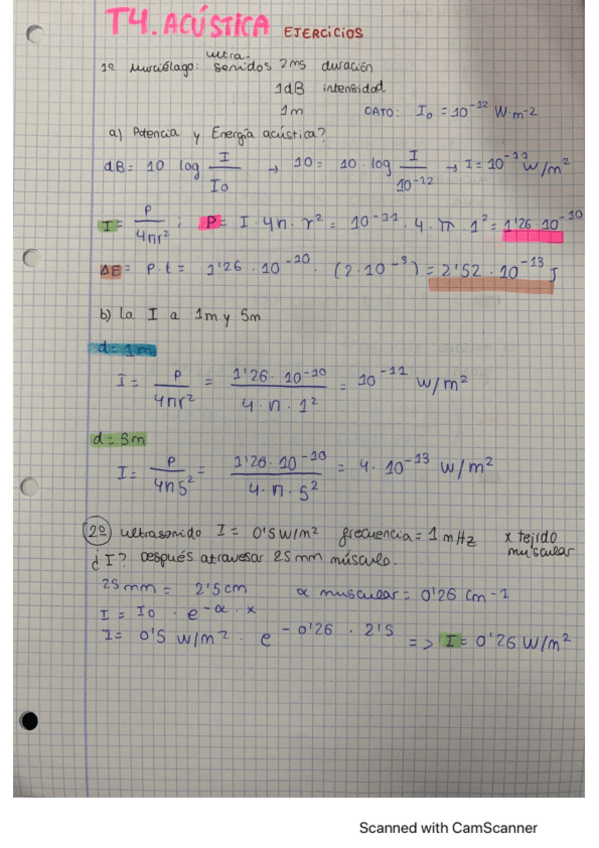 T4. ACÚSTICA EJERCICIOS
1º Murciélago: ultrasonidos 2ms duración
1dB intensidad
1m DATO: I₀ = 10⁻¹² W·m-2
a) Potencia y Energía acústica?
dB = 10 log I/I₀ → 10 = 10 · log I/10⁻¹² → I = 10⁻¹¹ W/m²
I = P/4πr² ; P = I · 4π · r² = 10⁻¹¹ · 4 · π · 1² = 1'26 · 10⁻¹⁰
ΔE = P · t = 1'26 · 10⁻¹⁰ · (2 · 10⁻³) = 2'52 · 10⁻¹³ J
b) la I a 1m y 5m
d = 1m
I = P/4πr² = 1'26 · 10⁻¹⁰/4 · π · 1² = 10⁻¹¹ W/m²
d = 5m
I = P/4π5² = 1'26 · 10⁻¹⁰/4 · π · 5² = 4 · 10⁻¹³ W/m²
2º) ultrasonido I = 0'5 W/m² frecuencia = 1 mHz x tejido muscular
¿I? Después atravesar 25 mm músculo.
25 mm = 2'5 cm α muscular = 0'26 cm-1
I = I₀ · e^-α·x
I = 0'5 W/m² · e^-0'26 · 2'5 => I = 0'26 W/m²
Scanned with CamScanner